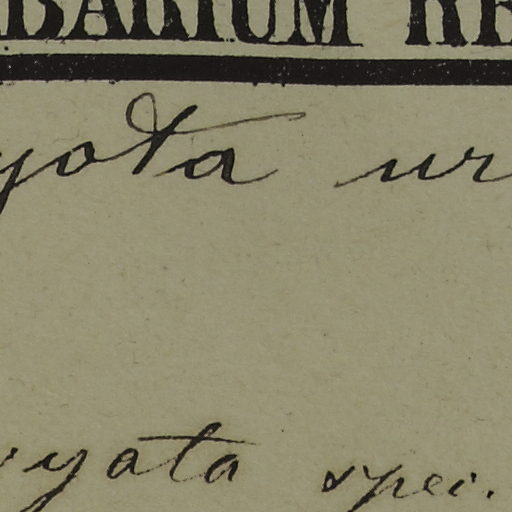 BARIUM RE
yota ur
yata spei.